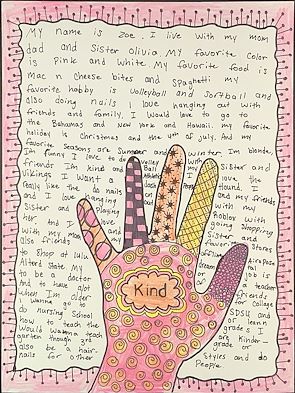 My name is Zoe. I live with my mom
dad and Sister Olivia My favorite color
is Pink and White. My favorite food is
Mac n Cheese bites and Spaghetti My
favorite hobby is Volleyball and Softball and
also doing nails I love hanging out with
friends and family. I would love to go to
the Bahamas and New York and Hawaii. my favorite
holiday is Christmas and the 4th of July. And my
favorite Seasons are Summer and winter, Im blonde,
Im funny I love to do volley ball
friends I'm kind and
Vikings I want a
really like
and I love hanging
Sister and Playing
her And I
with my mom
also friends
to Shop at Lulu
Altard State My
to be a doctor
And to have alot
when I'm older
I wanna go to
do nursing School
now to teach the
Would wanna teach
garten though 3rd
also be a hair-
nails for other
Sister and
love the
Hound, I
and my friends
with my
Roblox with
going shopping
Sister and
favorite Stores
airpose
job is
a teacher
friends
College
SDSU and
or learn
grade I
are Kinder-
grade or
Styles and do
People
Kind